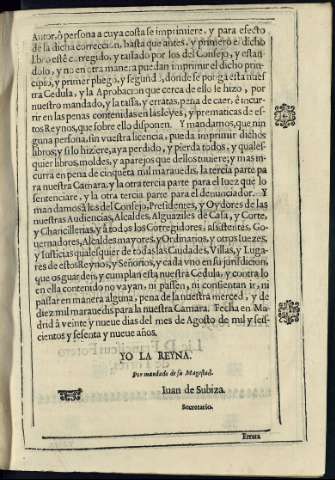 Autor, ò persona a cuya costa se imprimiere, y para efecto
de la dicha correccion, hasta que antes, y primero el dicho
libro estè corregido, y tassado por los del Consejo, y estan-
dolo, y no en otra manera puedan imprimir el dicho prin-
cipio, y primer pliego, y segundo, donde se ponga esta nues
tra Cedula, y la Aprobacion que cerca de ello se hizo, por
nuestro mandado, y la tassa, y erratas, pena de caer, è incur-
rir en las penas contenidas en las leyes, y prematicas de es-
tos Reynos, que sobre ello disponen. Y mandamos, que nin
guna persona, sin vuestra licencia, pueda imprimir dichos
libros, y si lo hiziere, aya perdido, y pierda todos, y quales-
quier libros, moldes, y aparejos que dellos tuuiere; y mas in-
curra en pena de cinquẽta mil marauedis, la tercia parte pa
ra nuestra Camara, y la otra tercia parte para el Iuez que lo
sentenciare, y la otra tercia parte para el denunciador. Y
mandamos à los del Consejo, Presidentes, y Oydores de las
nuestras Audiencias, Alcaldes, Alguaziles de Casa, y Corte,
y Chancillerias, y à todos los Corregidores, asistentes, Go-
uernadores, Alcaldes mayores, y Ordinarios, y otros Iuezes,
y Iusticias qualesquier de todas las Ciudades, Villas, y Luga-
res de estos Reynos, y Señorios, y cada vno en su jurisdicion,
que os guarden, y cumplan esta nuestra Cedula, y contra lo
en ella contenido no vayan, ni passen, ni consientan ir, ni
passar en manera alguna, pena de la nuestra merced, y de
diez mil marauedis para la nuestra Camara. Fecha en Ma-
drid à veinte y nueue dias del mes de Agosto de mil y seis-
cientos y sesenta y nueue años.
YO LA REYNA.
Por mandado de su Magestad.
Iuan de Subiza.
Secretario.
Errata